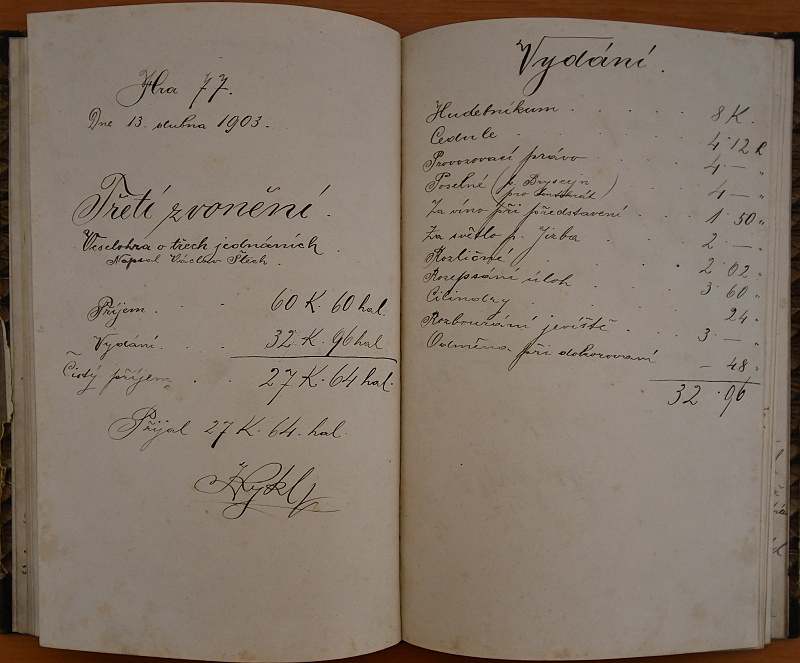 Hra 77.
Dne 13. dubna 1903.
Třetí zvonění.
Veselohra o třech jednáních.
Napsal Václav Štech.
Příjem. . . 60 K. 60 hal.
Vydání. . . 32 K. 96 hal
Čistý příjem . . 27 K. 64 hal.
Přijal 27 K. 64. hal.
Hykl
Vydání.
Hudebníkum . . . . 8 K.
Cedule . . . . 4 12 h
Provozovací právo 4 — „
Poselné (p. Bryscejn pro) 4 — „
Za víno při představení . 1 50 „
Za světlo p. Jirba . . 2 — „
Rozličné . . . 2 02 „
Rozepsání úloh . . 3 60 „
Cilindry . . . 24 „
Rozbourání jeviště . . 3 — „
Odměna při dekorovaní — 48 „
32 96